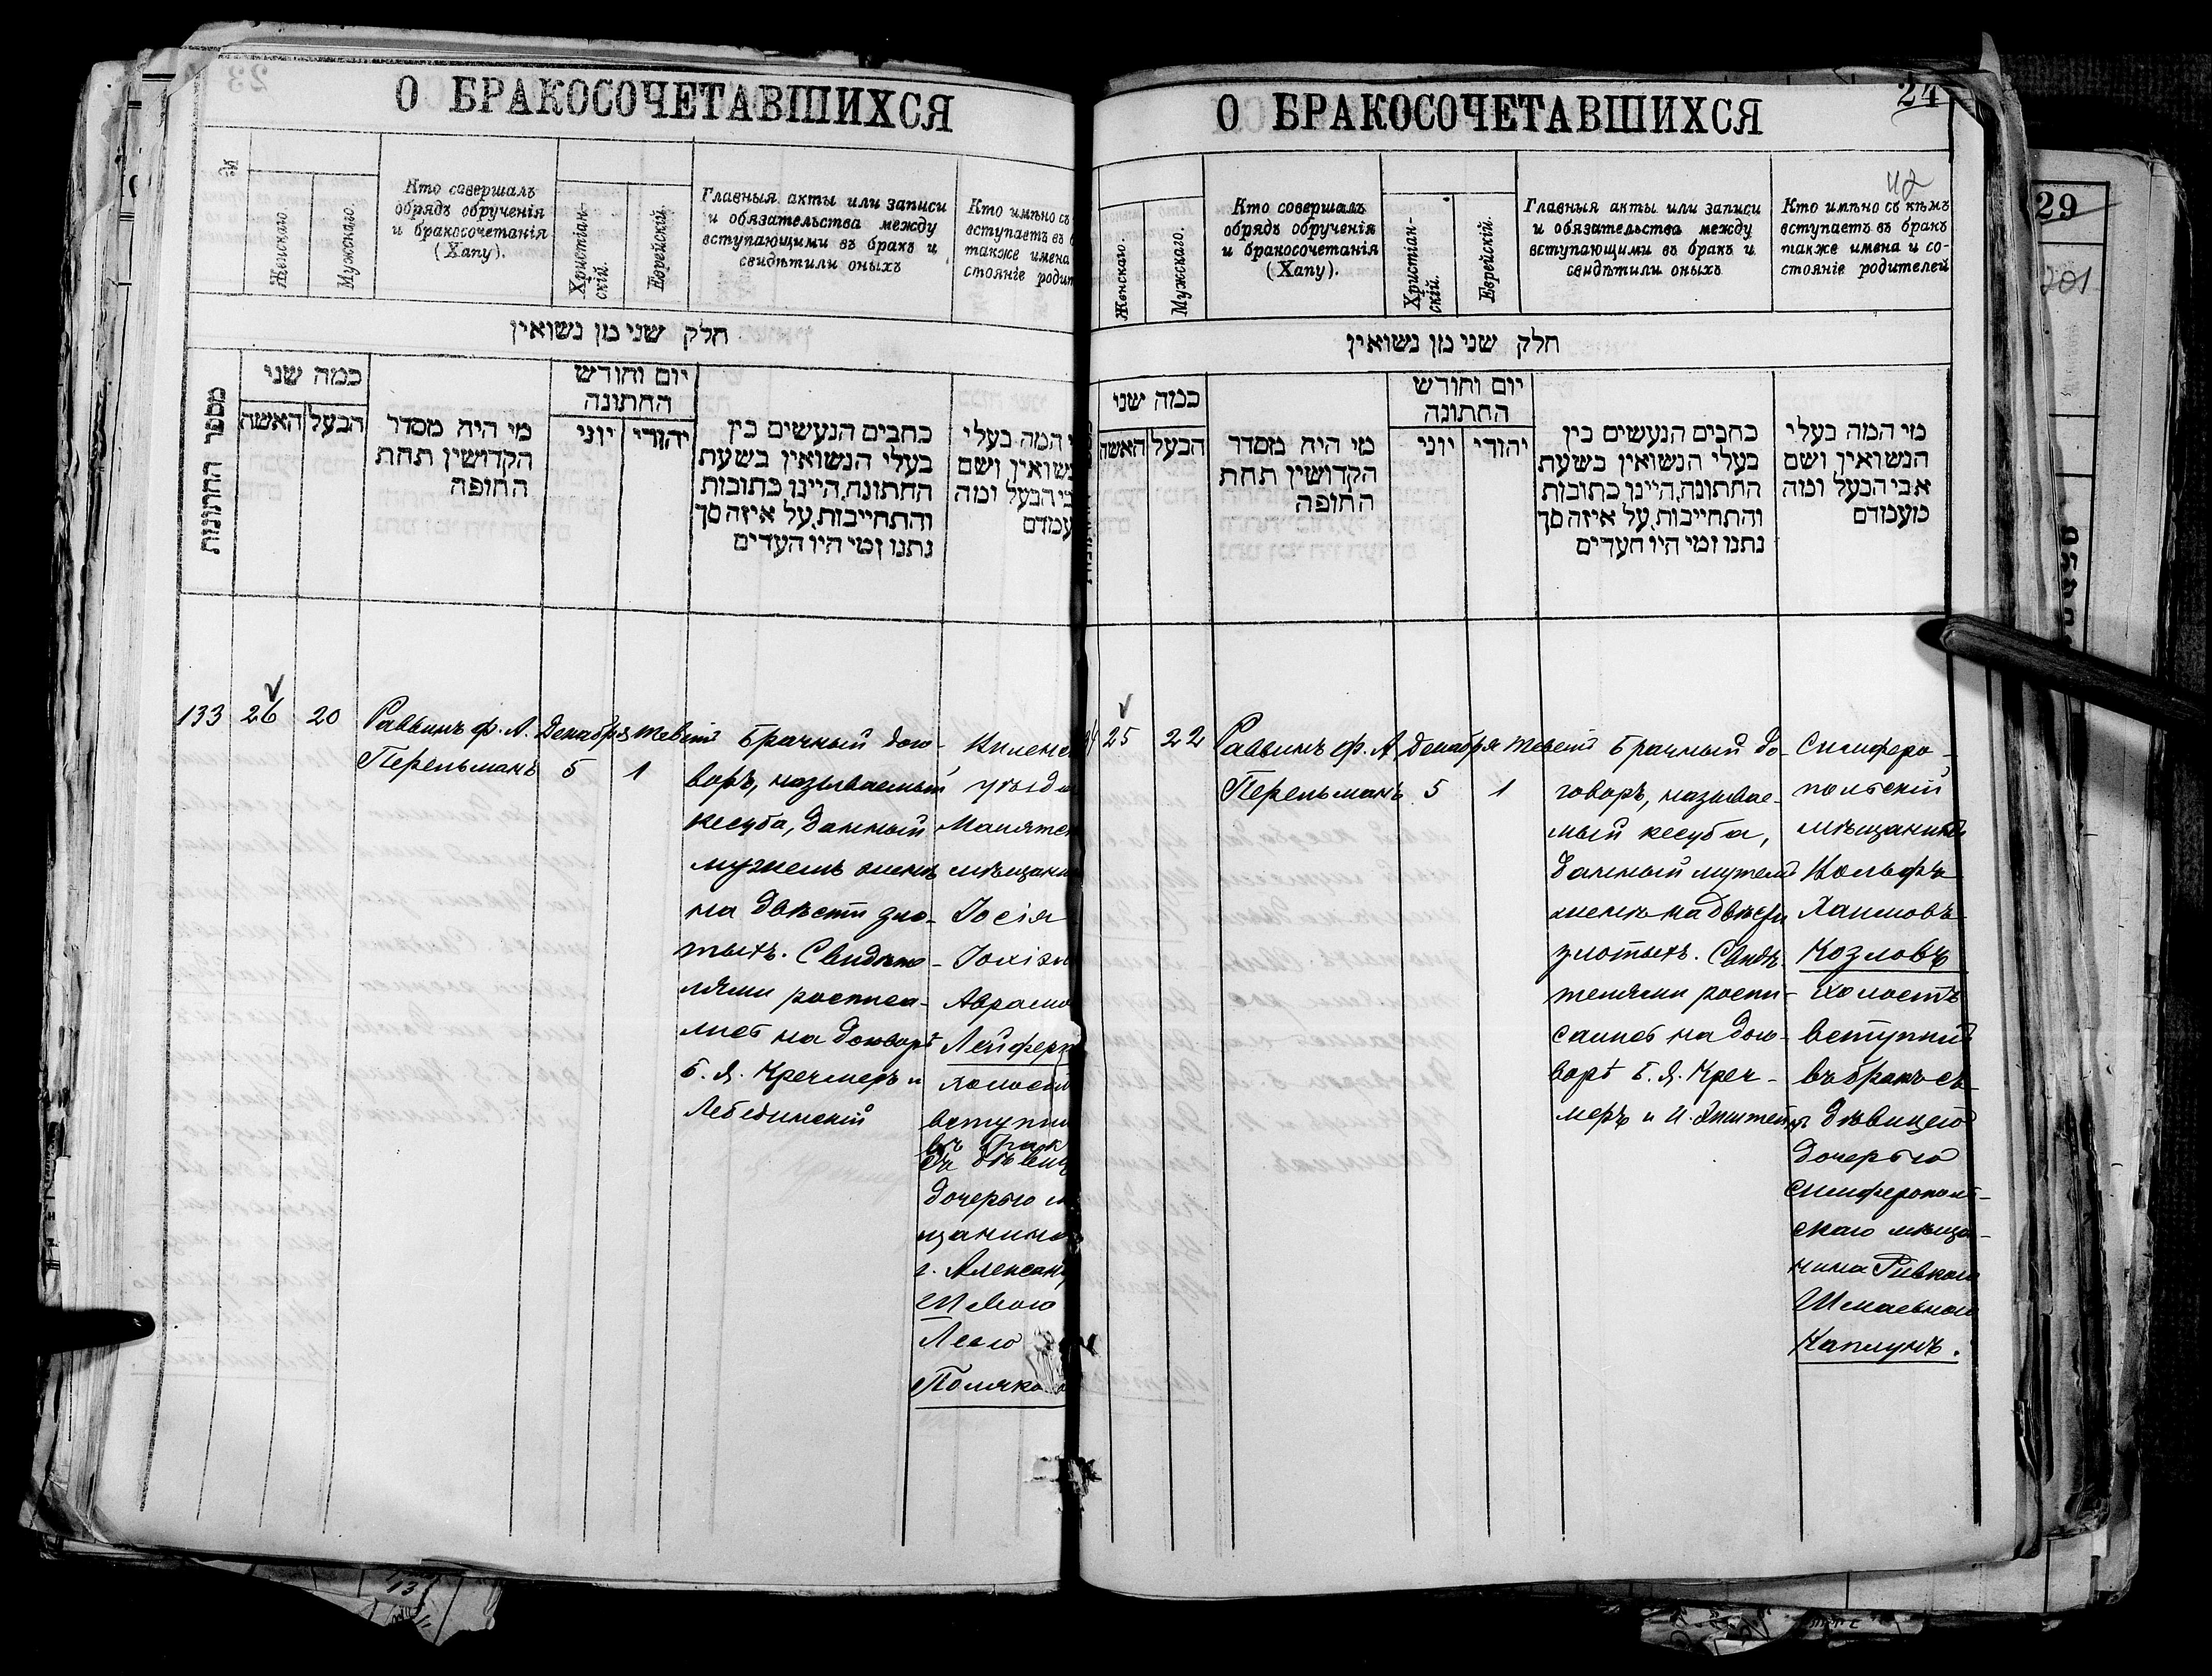 О БРАКОСОЧЕТАВШИХСЯ
№
Женскаго.
Мужскаго.
Кто совершалъ
обрядъ обрученія
и бракосочетанія
(Хапу).
Христіан-
скій.
Еврейскій.
Главныя акты или записи
и обязательства между
вступающими въ бракъ и
свидѣтили оныхъ
Кто имѣно съ
вступаетъ въ
также имена
стояніе
חלק שני מן נשואין
מספר החתונות
כמה שני
האשה
הבעל
מי היה מסדר
הקדושין תחת
החופה
יום וחודש
החתונה
יוני
יהודי
כתבים הנעשים בין
בעלי הנשואין בשעת
החתונה, היינו כתובות
והתחייבות, על איזה סך
נתנו ומי היו העדים
המה בעלי
ושם
הבעל ומה
133
26
20
Раввинъ Ф. А.
Перельманъ
Декабря
5
Тевет
1
Брачный дого-
воръ, называемый
кесуба, данный
мужемъ женѣ
на двѣсти зло-
тыхъ. Свидѣте-
лями росписа-
лись на договорѣ
Б. Я. Кречмеръ и
Лебединскій
мѣщани
Іосія
Авраамо
холостъ
вступи
въ брак
съ дѣвиц
дочерью
щанина
г. Александ
Поляко
О БРАКОСОЧЕТАВШИХСЯ
24
Женскаго.
Мужскаго.
Кто совершалъ
обрядъ обрученія
и бракосочетанія
(Хапу).
Христіан-
скій.
Еврейскій.
Главныя акты или записи
и обязательства между
вступающими въ бракъ и
свидѣтили оныхъ
Кто имѣно съ кѣмъ
вступаетъ въ бракъ
также имена и со-
стояніе родителей
חלק שני מן נשואין
כמה שני
האשה
הבעל
מי היה מסדר
הקדושין תחת
החופה
יום וחודש
החתונה
יוני
יהודי
כתבים הנעשים בין
בעלי הנשואין בשעת
החתונה, היינו כתובות
והתחייבות, על איזה סך
נתנו ומי היו העדים
מי המה בעלי
הנשואין ושם
אבי הבעל ומה
מעמדם
25
22
Раввинъ Ф. А.
Перельманъ
Декабря
5
Тевет
1
Брачный до-
говоръ, называе-
мый кесуба,
данный мужемъ
женѣ на двѣсти
злотыхъ. Свидѣ-
телями роспи-
сались на дого-
ворѣ Б. Я. Креч-
меръ и И. Эпштейнъ
Симферо-
польскій
мѣщанинъ
Вольфъ
Хаимовъ
Козловъ
холостъ
вступилъ
въ бракъ съ
дѣвицею
дочерью
симферополь-
скаго мѣща-
нина Ривкою
Шмаевною
Каплунъ.
29
201